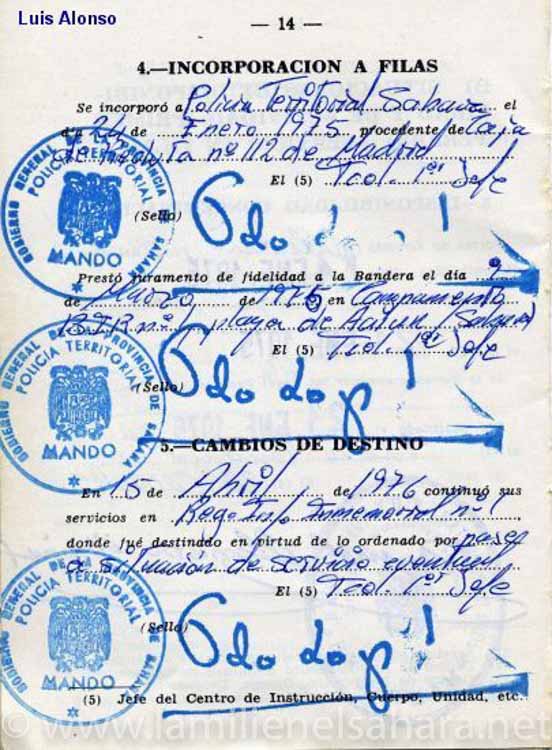 Luis Alonso
— 14 —
4.—INCORPORACION A FILAS
Se incorporó a Policia Territorial Sahara el
día 24 de Enero 1975 procedente de Caja
de Recluta nº 112 de Madrid
El (5) Tcol. 1er Jefe
(Sello)
GOBIERNO GENERAL DE LA PROVINCIA DE SAHARA
POLICIA TERRITORIAL
MANDO
Prestó juramento de fidelidad a la Bandera el día 9
de Marzo de 1975 en Campamento
B.I.R. nº 1 playa de Aaiun (Sahara)
El (5) Tcol. 1er Jefe
(Sello)
GOBIERNO GENERAL DE LA PROVINCIA DE SAHARA
POLICIA TERRITORIAL
MANDO
5.—CAMBIOS DE DESTINO
En 15 de Abril de 1976 continuó sus
servicios en Regto Info Inmemorial nº 1
donde fué destinado en virtud de lo ordenado por pase
a situación de servicio eventual
El (5) Tcol. 1er Jefe
(Sello)
GOBIERNO GENERAL DE LA PROVINCIA DE SAHARA
POLICIA TERRITORIAL
MANDO
(5) Jefe del Centro de Instrucción, Cuerpo, Unidad, etc.
© www.lamilienelsahara.net